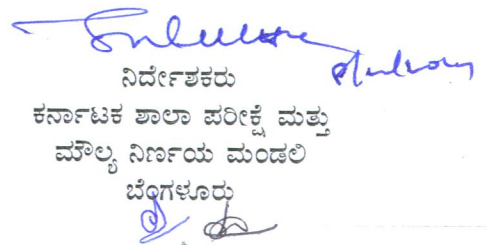 ನಿರ್ದೇಶಕರು
ಕರ್ನಾಟಕ ಶಾಲಾ ಪರೀಕ್ಷೆ ಮತ್ತು
ಮೌಲ್ಯ ನಿರ್ಣಯ ಮಂಡಲಿ
ಬೆಂಗಳೂರು